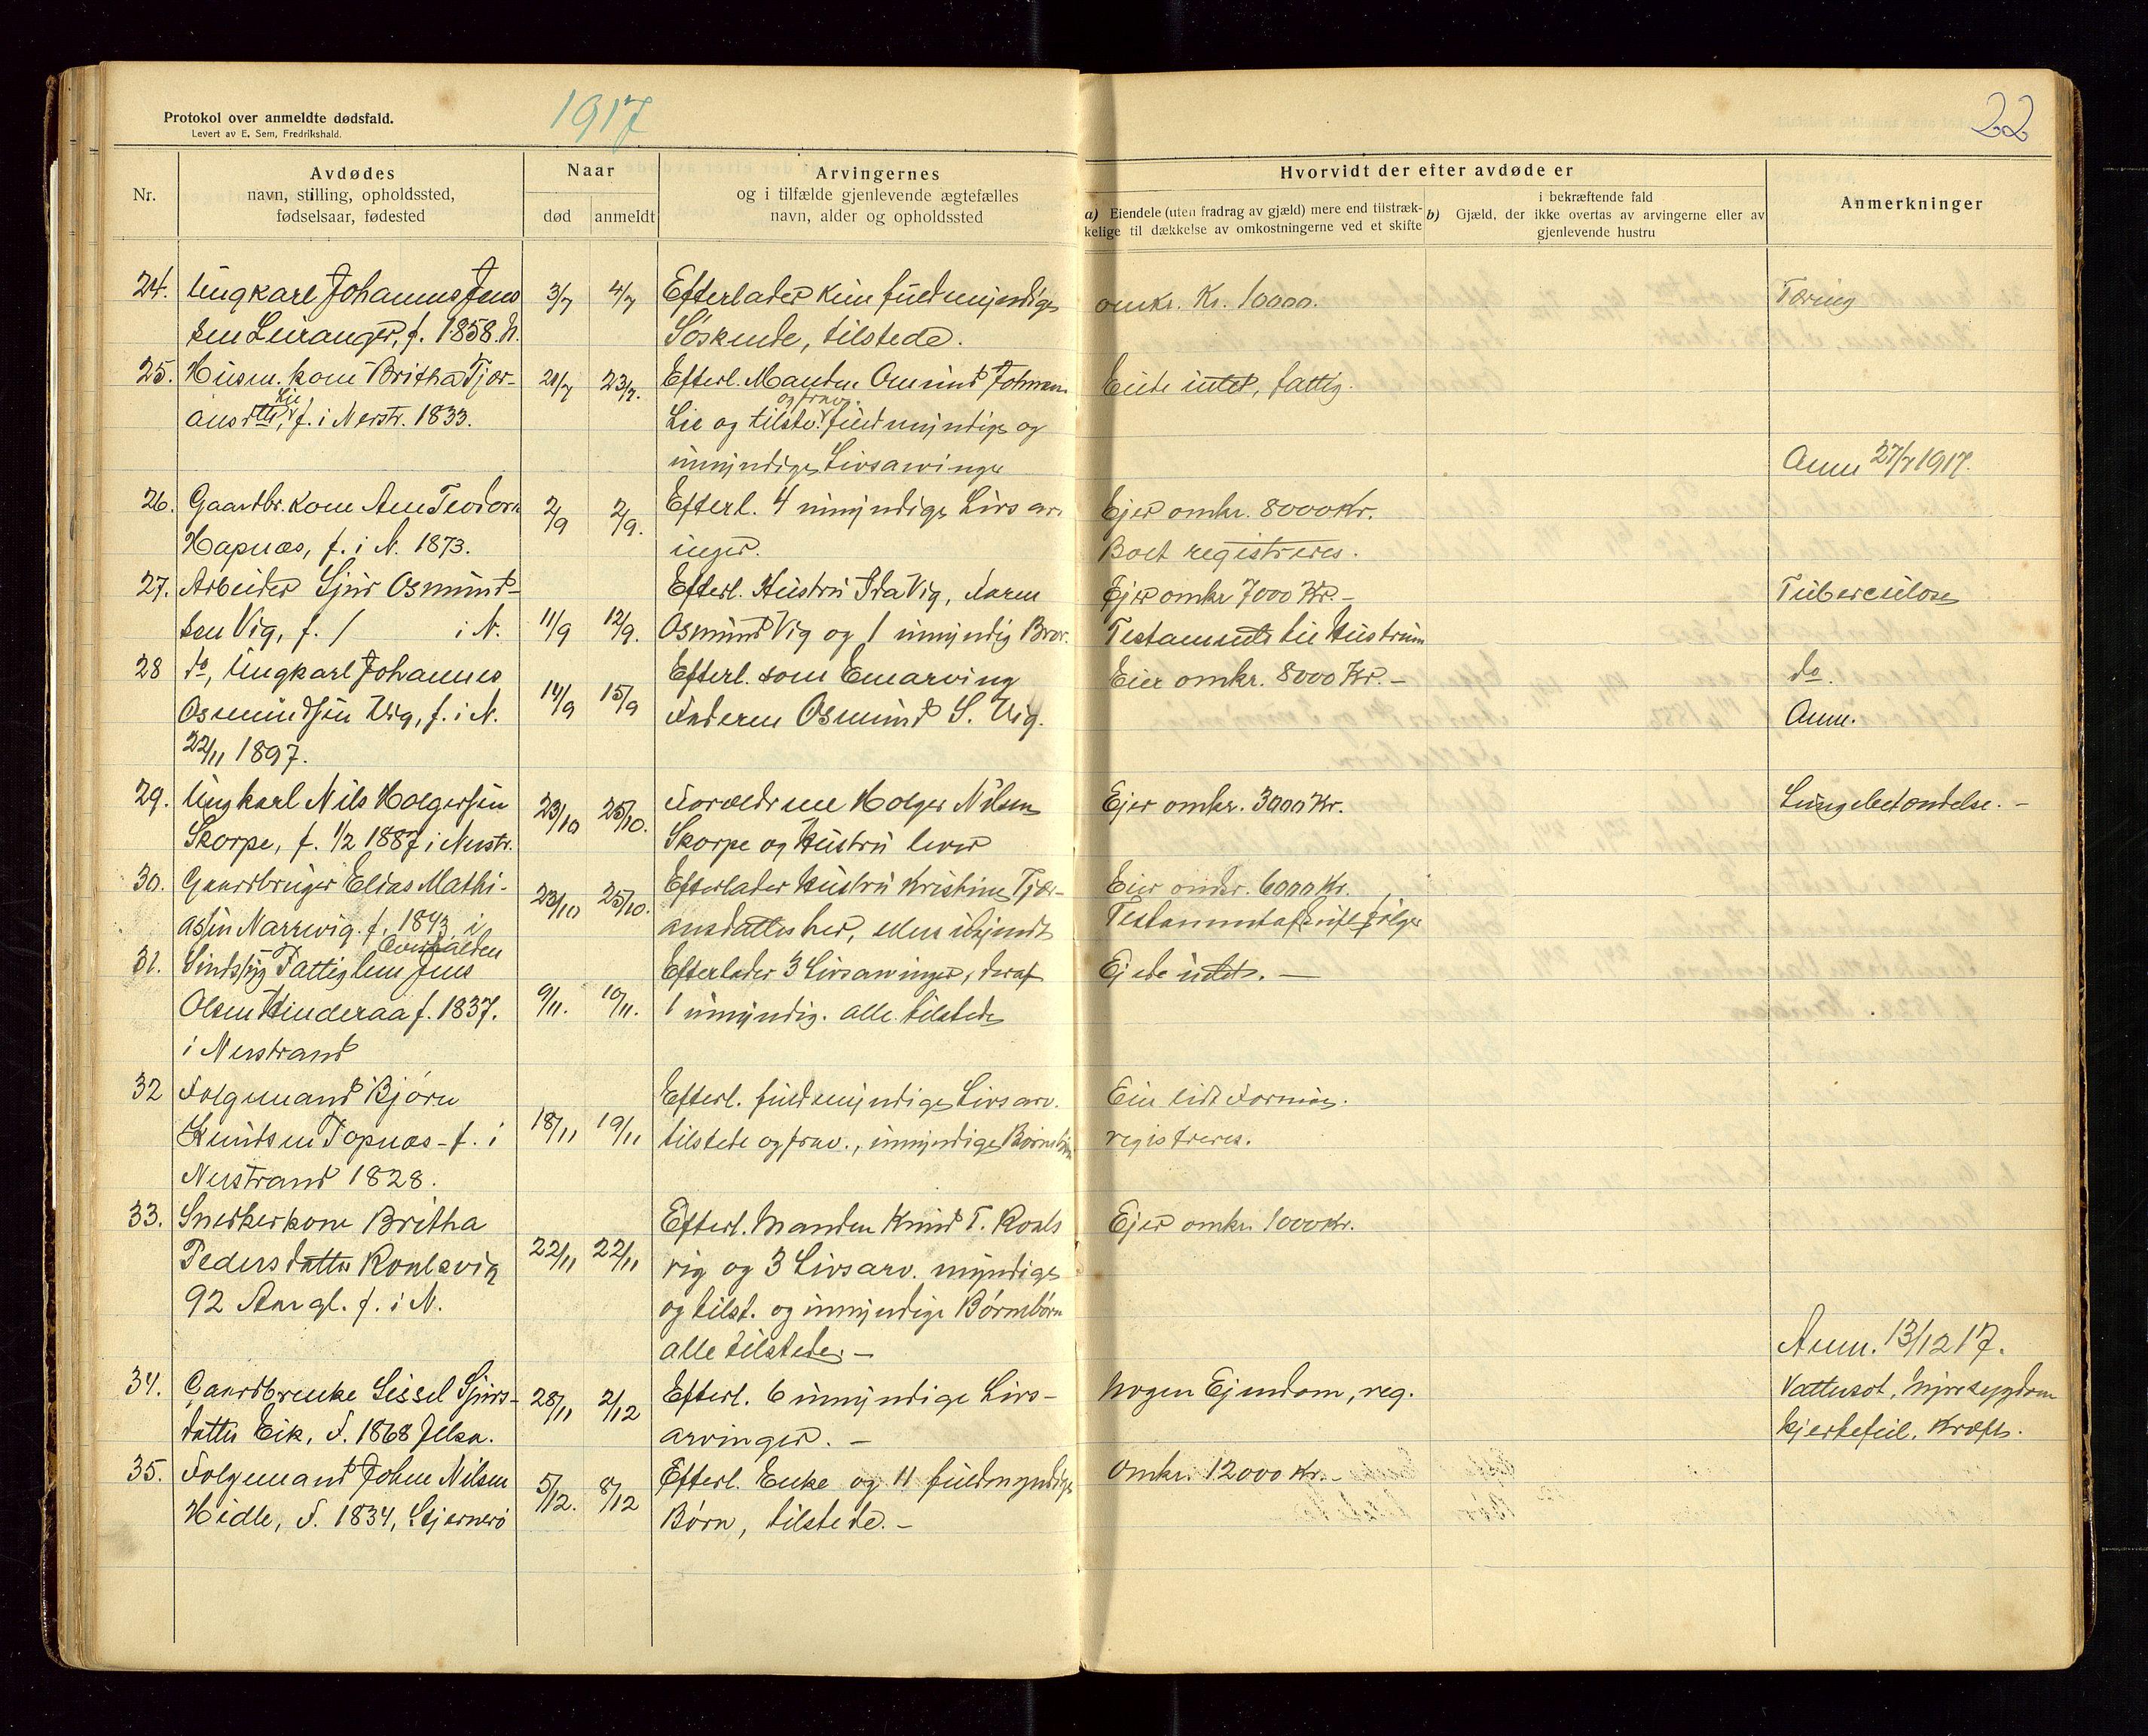 Protokol over anmeldte dødsfald.
Levert av E. Sem, Fredrikshald.
1917
22
Nr.
Avdødes
navn, stilling, opholdssted,
fødselsaar, fødested
Naar
død
anmeldt
Arvingernes
og i tilfælde gjenlevende ægtefælles
navn, alder og opholdssted
Hvorvidt der efter avdøde er
a) Eiendele (uten fradrag av gjæld) mere end tilstræk-
kelige til dækkelse av omkostningerne ved et skifte
i bekræftende fald
b) Gjæld, der ikke overtas av arvingerne eller av
gjenlevende hustru
Anmerkninger
24. Ungkarl Johannes Jens
sen Leiranger, f. 1858. N.
3/7
4/7
Efterlader kun fuldmyndige
Søskende, tilstede.
omkr. Kr. 10000.
Tæring
25. Husm. kone Britha Tjør-
ansdtr, Lie f. i Nerstr. 1833.
21/7
23/7.
Efterl. Manden Omund Johnsen
Lie og tilsted. og frav. fuldmyndige og
umyndige Livsarvinger
Eiede intet, fattig.
Anm 27/7 1917.
26. Gaardbr. kone Ane Teodora
Hapnæs, f. i N. 1873.
2/9
2/9.
Efterl. 4 umyndige Livsarv
inger.
Ejer omkr. 8000 Kr.
Boet registreres.
27. Arbeider Sjur Osmund-
sen Vig, f. / i N.
11/9
12/9.
Efterl. Hustru Ida Vig, Faren
Osmund Vig og 1 umyndig Bror.
Ejer omkr 7000 Kr.-
Testamente til Hustruen
Tuberculose
28 do, Ungkarl Johannes
Osmundsen Vig, f. i N.
22/11 1897.
14/9
15/9
Efterl. som Enearving
Faderen Osmund S. Vig.
Eier omkr. 8000 Kr.-
do.
Anm.
29. Ungkarl Nils Holgersen
Skorpe, f. 1/2 1887 i Nerstr.
23/10
25/10.
Forældrene Holger Nilsen
Skorpe og Hustru lever
Ejer omkr. 3000 Kr.
Lungebetændelse.-
30. Gaardbruger Elias Mathi-
assen Narrevig. f. 1843 i
23/10
25/10.
Efterlader Hustru Kristine Tjør-
ansdatter her, ellers ubekjendt
Eier omkr. 6000 Kr.
Testamentafskrift følger
31. Sindssyg Fattiglem Jens
Olsen Hinderaa f. 1837.
i Nerstrand
9/11.
10/11.
Efterlader 3 Livsarvinger, deraf
1 umyndig. alle tilstede
Ejede intet.-
32 Folgemand Bjørn
Knutsen Topnæs - f. i
Nerstrand 1828.
18/11
19/11
Efterl. fuldmyndige Livsarv.
tilstede og frav., umyndige Børnebørn
Eier lidt Formue.
registreres.
33. Snedkerkone Britha
Pedersdatter Roalsvig
92 Aar gl. f. i N.
22/11
22/11
Efterl. Manden Knud T. Roals
vig og 3 Livsarv. myndige
og tilst. og umyndige Børnebørn
alle tilstede.-
Ejer omkr. 1000 Kr.
Anm. 13/12 17.
34. Gaardbrenke Sissel Sjurs-
datter Eik, F. 1868 Jelsa.
28/11
2/12
Efterl. 6 umyndige Livs-
arvinger.-
Nogen Ejendom, reg.
Vattersot, Nyresygdom
hjertefeil, Kræft.
35. Folgemand John Nilsen
Hidle, F. 1834, Stjernerø
5/12.
8/12
Efterl. Enke og 11 fuldmyndige
Børn, tilstede.-
Omkr. 12000 Kr.-